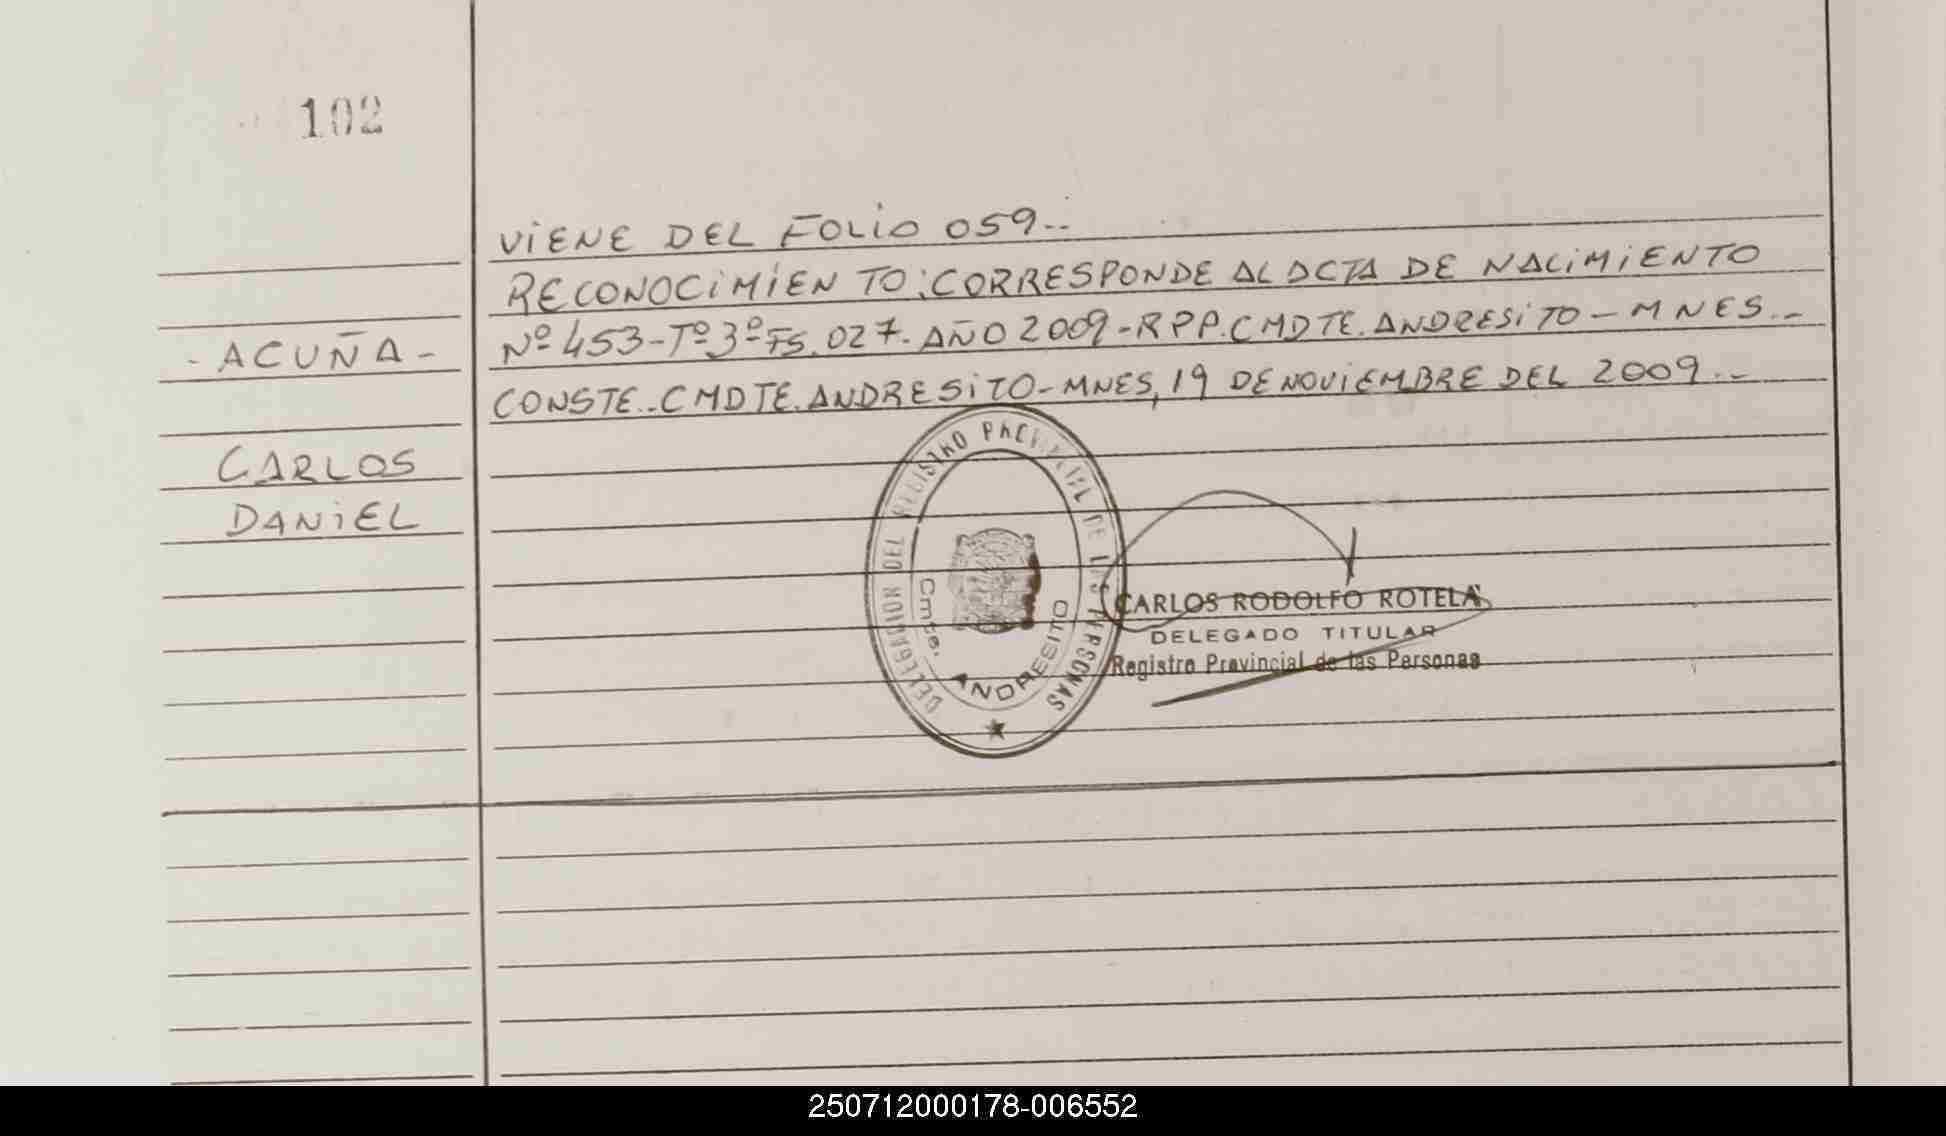 102
VIENE DEL FOLIO 059..
RECONOCIMIENTO: CORRESPONDE AL ACTA DE NACIMIENTO
- ACUÑA -
Nº 453-Tº3º FS. 027. AÑO 2009-RPP. CMDTE. ANDRESITO - MNES..-
CONSTE..CMDTE. ANDRESITO-MNES, 19 DE NOVIEMBRE DEL 2009..-
CARLOS
DANIEL
DELEGACION DEL REGISTRO PROVINCIAL DE LAS PERSONAS
Cmte. ANDRESITO
CARLOS RODOLFO ROTELA
DELEGADO TITULAR
Registro Provincial de las Personas
250712000178-006552